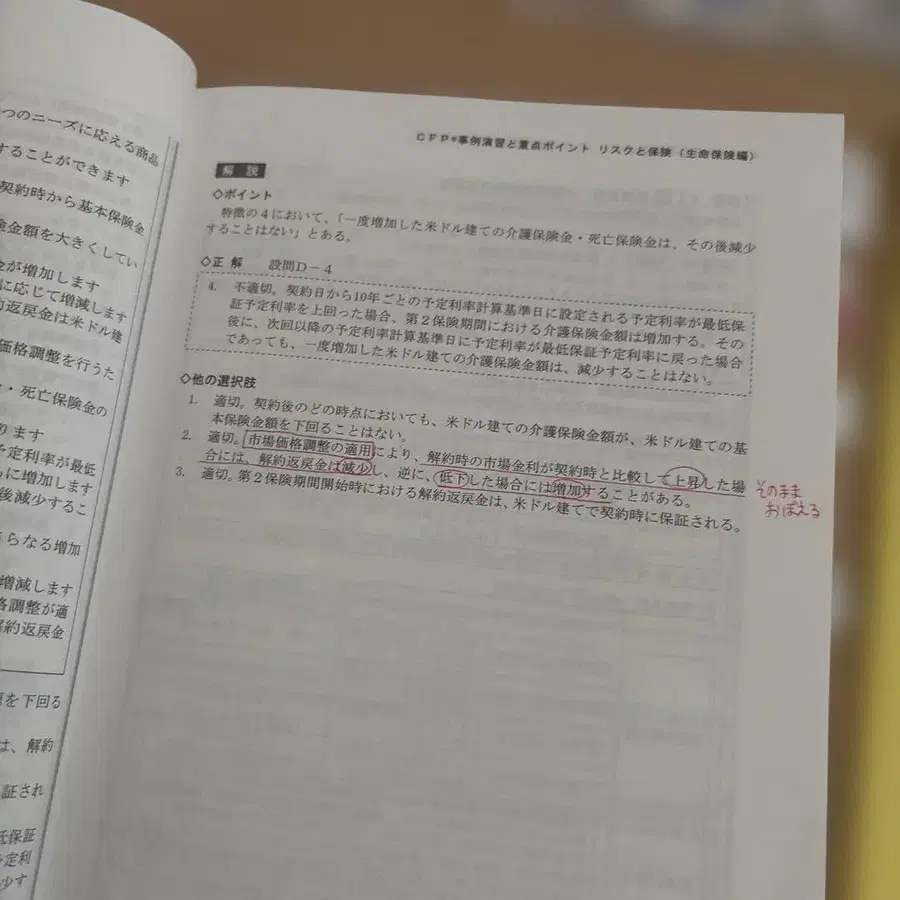 つのニーズに応える商品
することができます
契約時から基本保険金
険金額を大きくしてい
金が増加します
に応じて増減します
約返戻金は米ドル建
価格調整を行うた
・死亡保険金の
ります
予定利率が最低
らに増加します
後減少するこ
らなる増加
増減します
格調整が適
解約返戻金
を下回る
は、解約
証され
低保証
予定利
少す
CFP®事例演習と重点ポイント リスクと保険（生命保険編）
解説
◇ポイント
特徴の4において、「一度増加した米ドル建ての介護保険金・死亡保険金は、その後減少
することはない」とある。
◇正解 設問D－4
4. 不適切。契約日から10年ごとの予定利率計算基準日に設定される予定利率が最低保
証予定利率を上回った場合、第2保険期間における介護保険金額は増加する。その
後に、次回以降の予定利率計算基準日に予定利率が最低保証予定利率に戻った場合
であっても、一度増加した米ドル建ての介護保険金額は、減少することはない。
◇他の選択肢
1. 適切。契約後のどの時点においても、米ドル建ての介護保険金額が、米ドル建ての基
本保険金額を下回ることはない。
2. 適切。市場価格調整の適用により、解約時の市場金利が契約時と比較して上昇した場
合には、解約返戻金は減少し、逆に、低下した場合には増加することがある。
3. 適切。第2保険期間開始時における解約返戻金は、米ドル建てで契約時に保証される。
そのまま
おぼえる